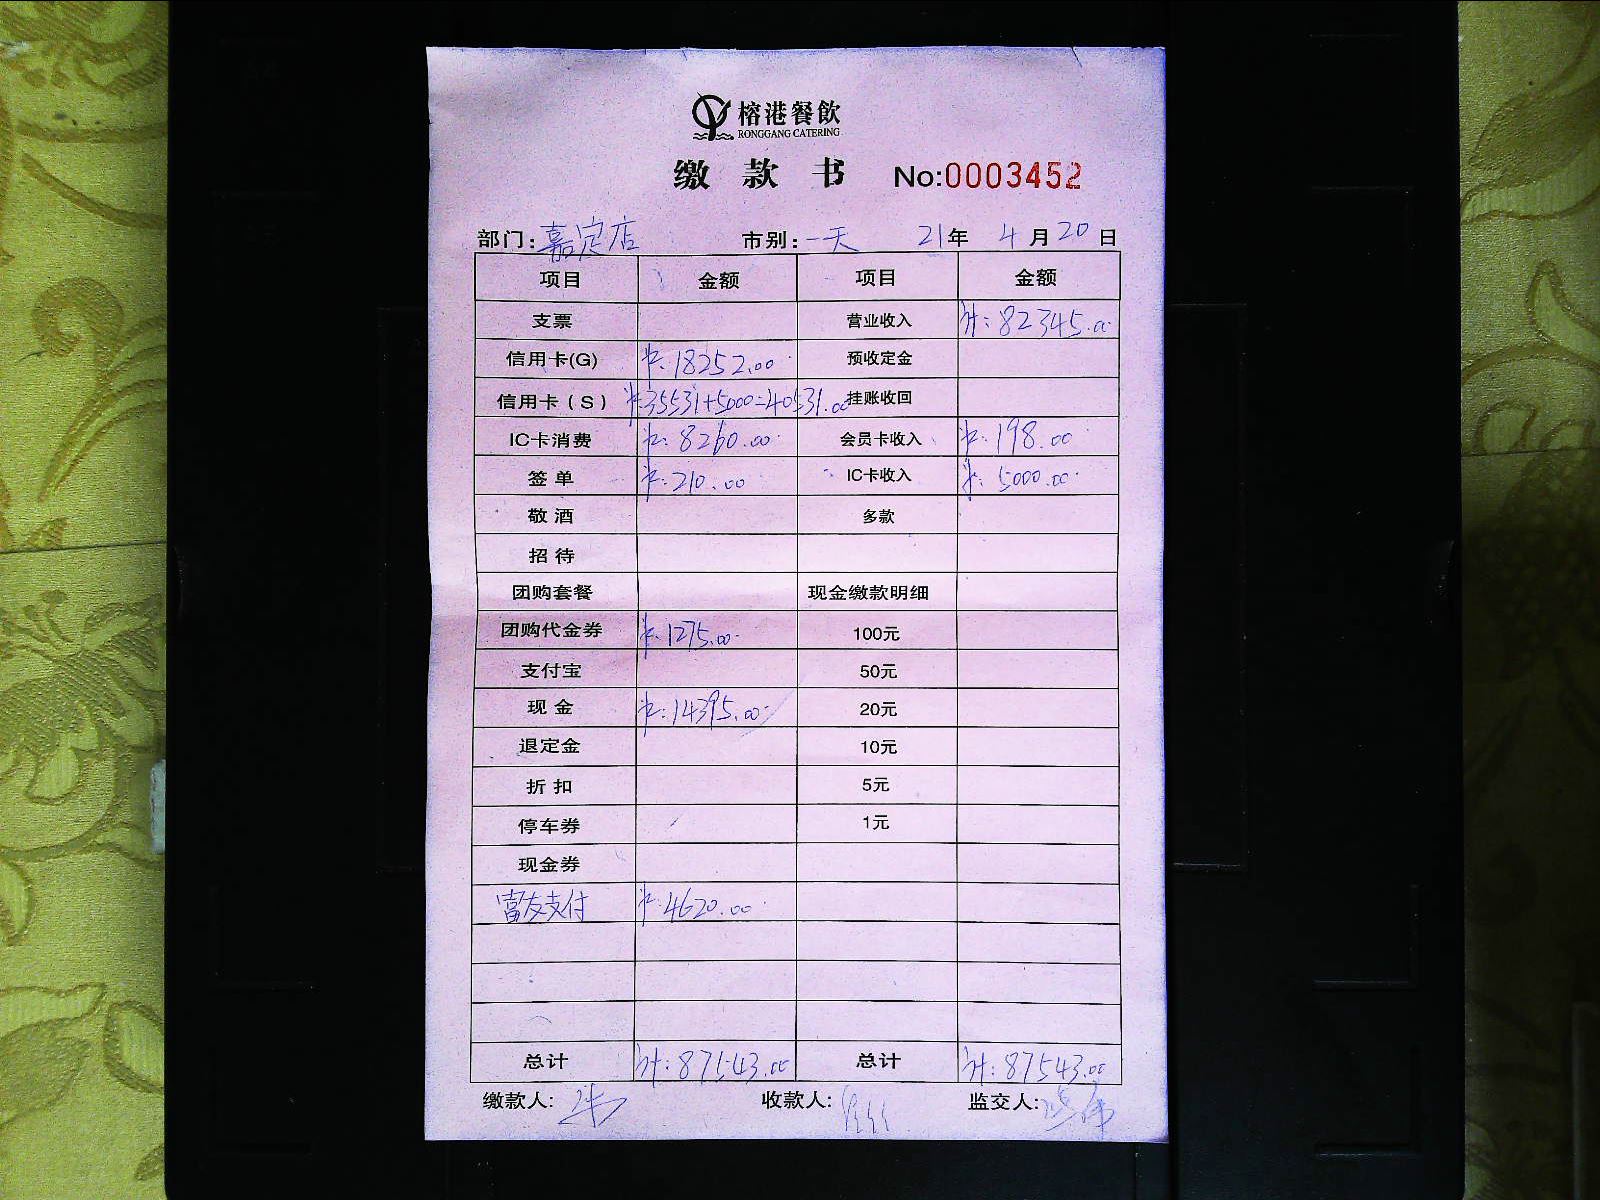 榕港餐飲
RONGGANG CATERING
缴款书 No:0003452
部门:嘉定店 市别:一天 21年 4月20日
项目 金额 项目 金额
支票 营业收入 计:82345.00
信用卡(G) 18252.00 预收定金
信用卡(S) 35531+5000=40531.00 挂账收回
IC卡消费 8260.00 会员卡收入 198.00
签单 210.00 IC卡收入 5000.00
敬酒 多款
招待
团购套餐 现金缴款明细
团购代金券 1275.00 100元
支付宝 50元
现金 14395.00 20元
退定金 10元
折扣 5元
停车券 1元
现金券
富友支付 4620.00
总计 计:87543.00 总计 计:87543.00
缴款人: 收款人: 监交人: